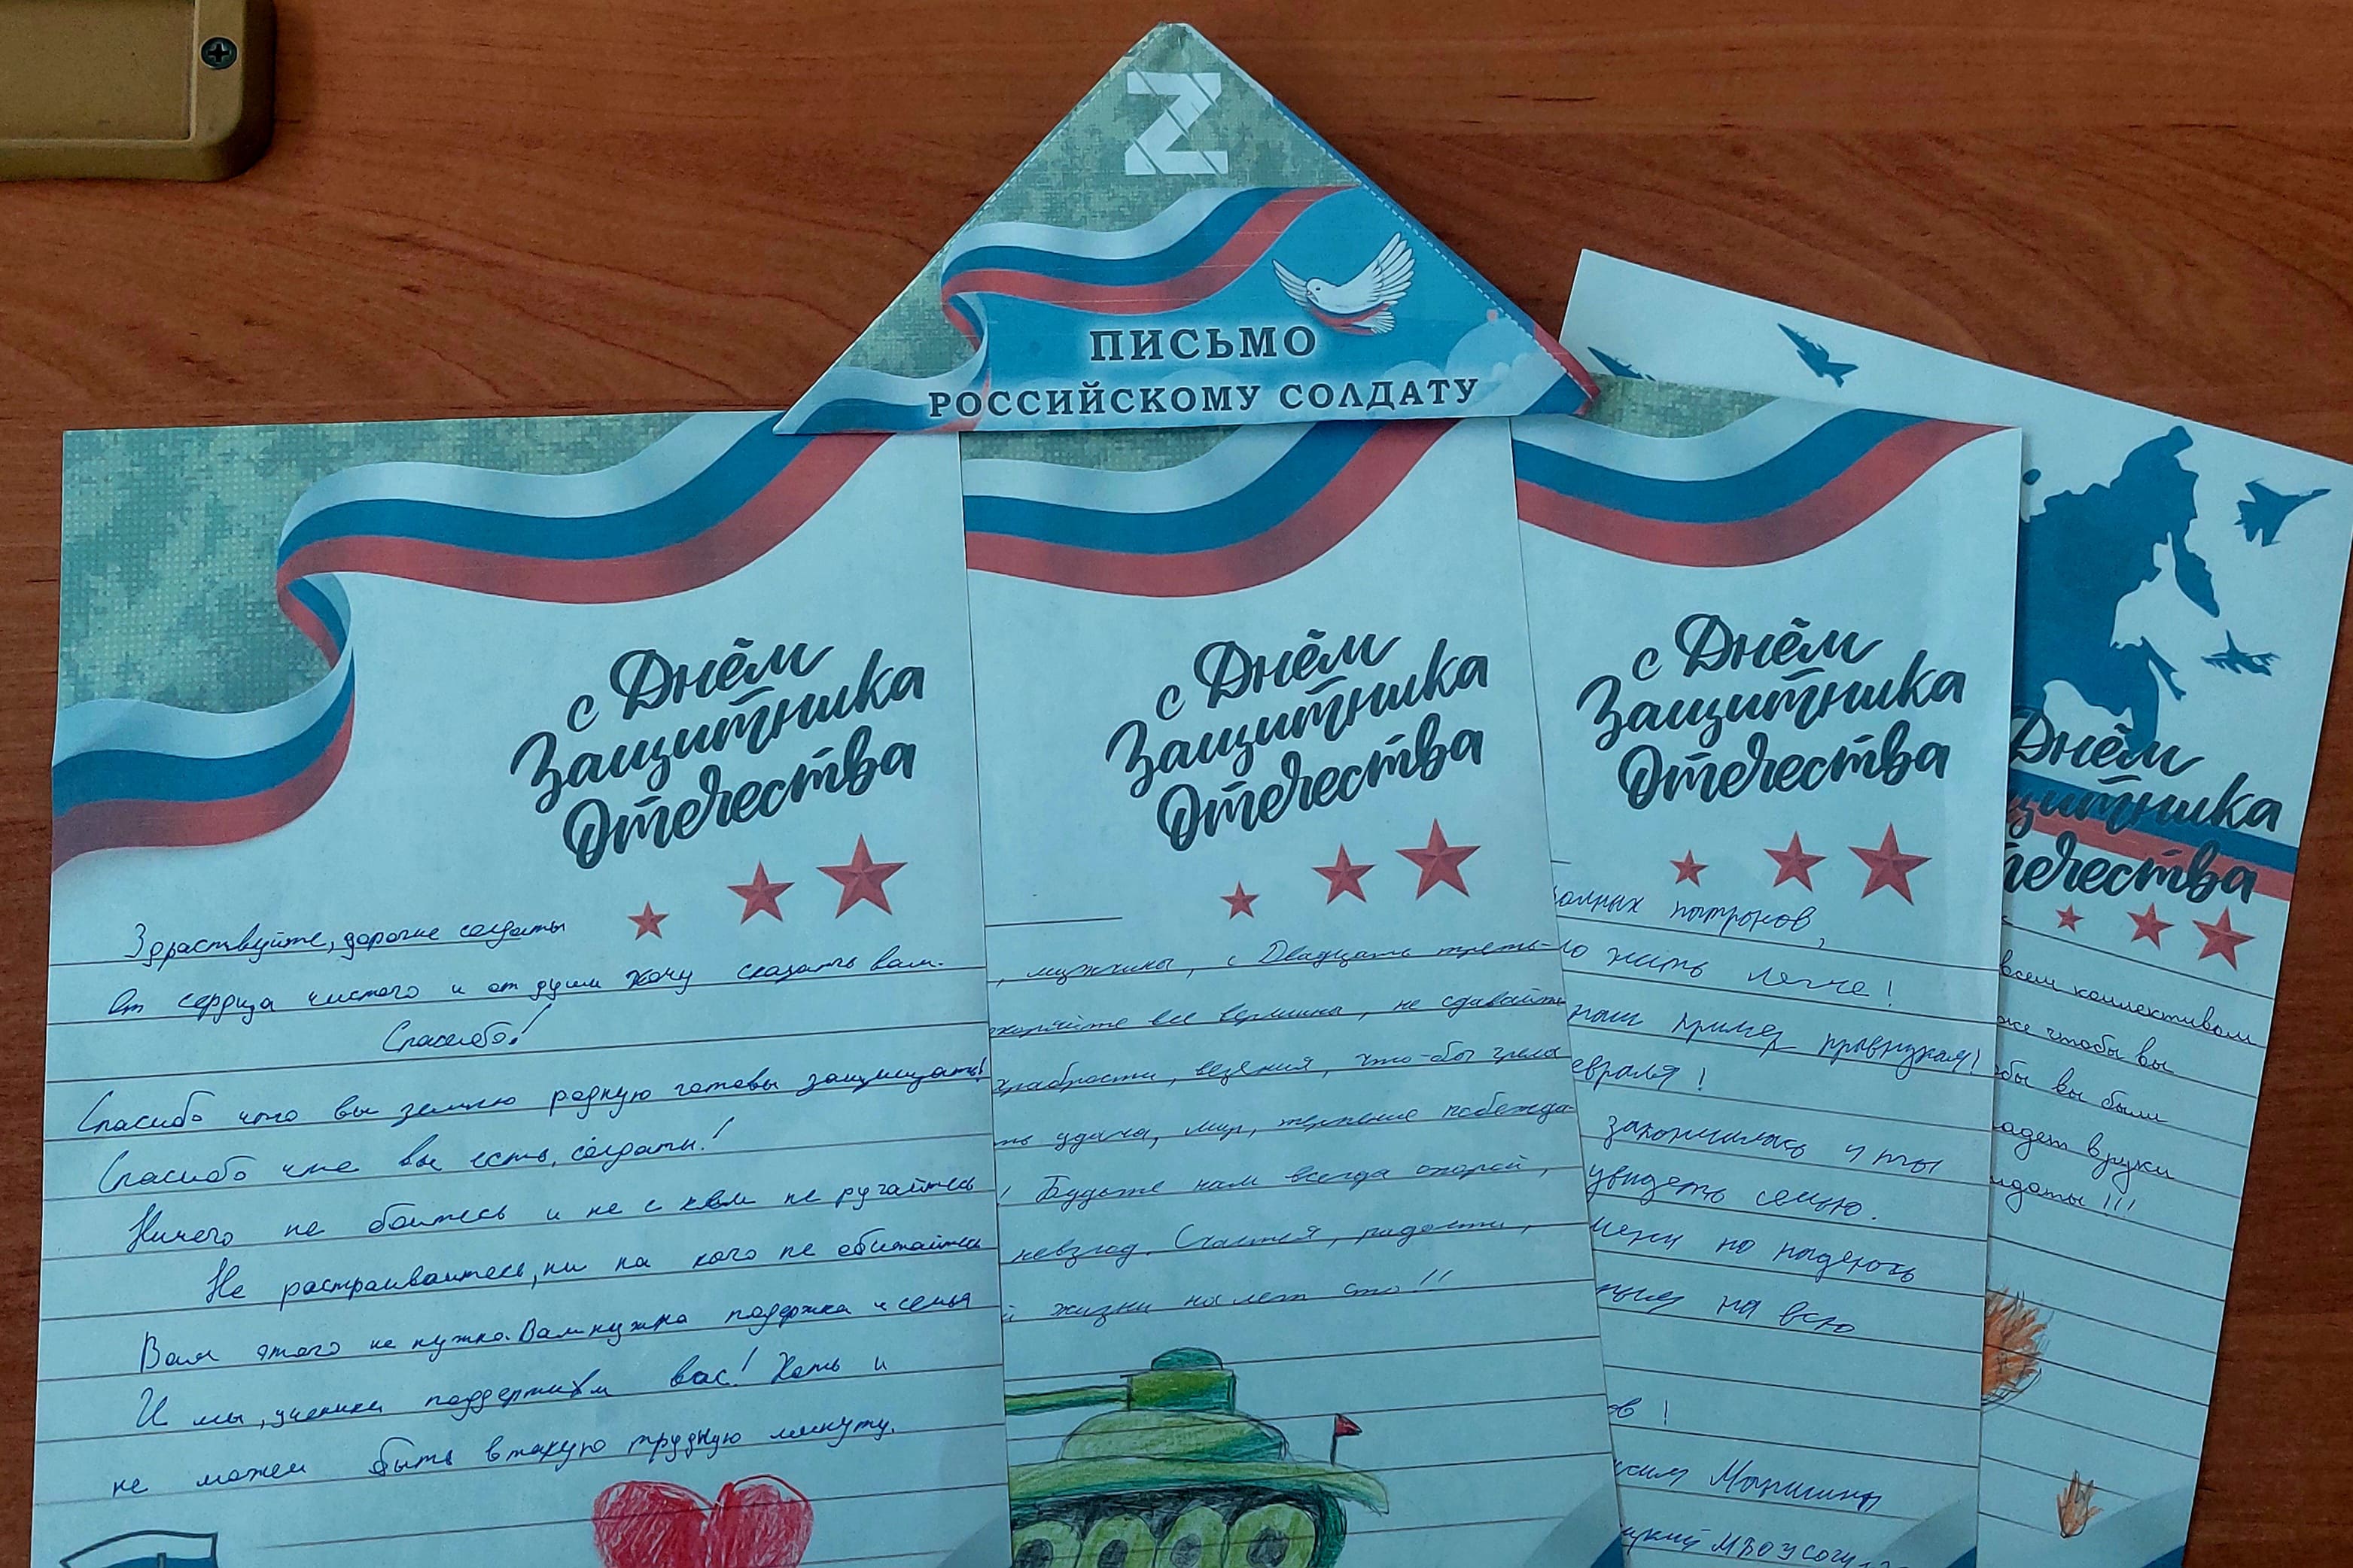 Z
ПИСЬМО
РОССИЙСКОМУ СОЛДАТУ
с Днём
Защитника
Отечества
Здраствуйте, дорогие солдаты
От сердца чистого и от души хочу сказать вам.
Спасибо!
Спасибо что вы землю родную готовы защищать!
Спасибо что вы есть, солдаты!
Ничего не бойтесь и не с кем не ругайтесь
Не растраивайтесь, ни на кого не обижайтесь
Вам этого не нужно. Вам нужна подержка и семья
И мы, ученики поддержим вас! Хоть и
не можем быть в такую трудную минуту.
с Днём
Защитника
Отечества
, мужчины, с Двадцать треть-
все вершины, не сдавайте
храбрости, везения, что-бы
ть удача, мир, терпение победжа-
! Будьте нам всегда опорой,
невзгод. Счастья, радости,
й жизни на лет сто!!
с Днём
Защитника
Отечества
патронов,
жить легче!
пример правнукам!
евраля!
закончилась и ты
увидеть семью.
но надеюсь
на всю
ов!
Маришины
МБОУ
Днём
щитника
течества
всем коллективом
же чтобы вы
бы вы были
адет в руки
лдаты!!!